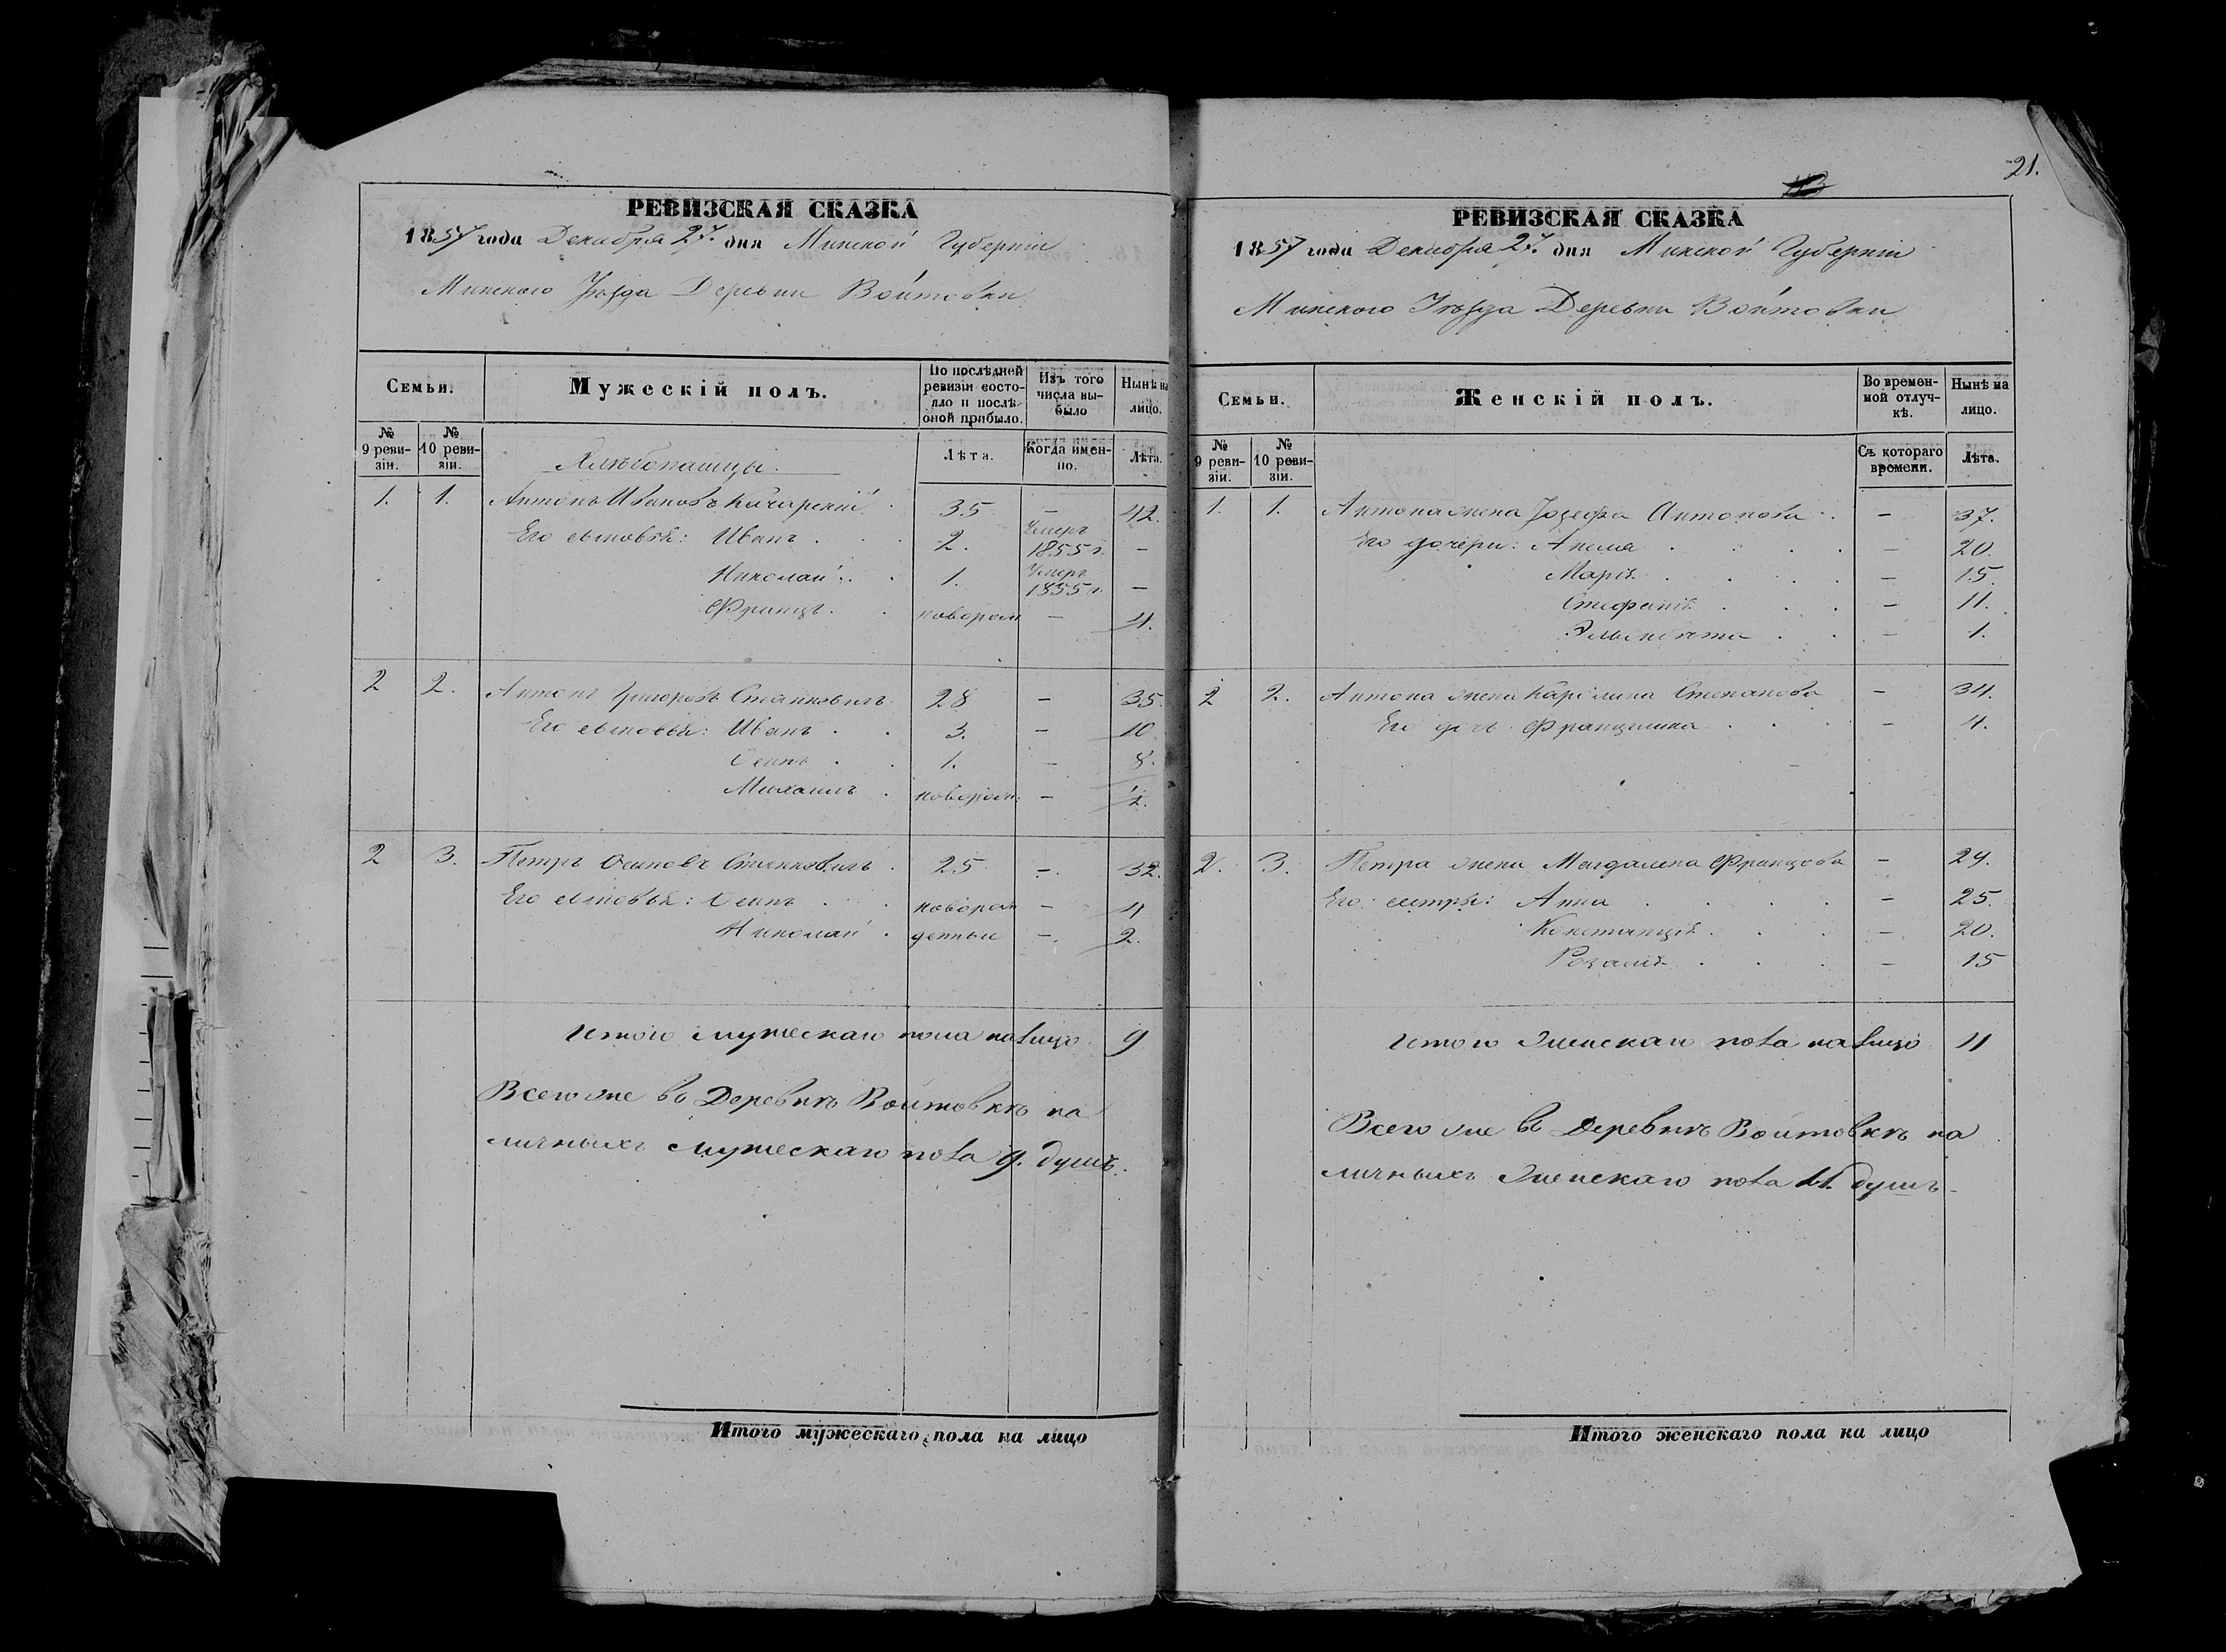 РЕВИЗСКАЯ СКАЗКА
1857 года Декабря 27. дня Минской Губерніи
Минского Уѣзда Деревни Войтовки
Семьи.
Мужескій полъ.
По послѣдней ревизіи состояло и послѣ оной прибыло.
Изъ того числа выбыло
Нынѣ на лицо.
№ 9 ревизіи.
№ 10 ревизіи.
Хлѣбопашцы.
Лѣта.
Когда именно.
Лѣта.
1. 1. Антонъ Ивановъ 35 — 42.
Его сыновья: Иванъ . . . 2. Умеръ 1855 г. —
Николай . . 1. Умеръ 1855 г. —
Францъ . . новорож — 4.
2 2. Антонъ Григоровъ Станкевичъ 28 — 35.
Его сыновья: Иванъ . . 3. — 10.
Осипъ . . 1. — 8.
Михаилъ . новорож: — ½.
2 3. Петръ Осиповъ Станкевичъ . 25 — 32.
Его сыновья: Осипъ . . . новорож — 4
Николай . денные — 2.
Итого мужескаго пола налицо 9
Всего же въ Деревнѣ Войтовкѣ на
личныхъ мужескаго пола 9. душъ.
Итого мужескаго пола на лицо
21.
РЕВИЗСКАЯ СКАЗКА
1857 года Декабря 27. дня Минской Губерніи
Минского Уѣзда Деревни Войтовки
Семьи.
Женскій полъ.
Во временной отлучкѣ.
Нынѣ на лицо.
№ 9 ревизіи.
№ 10 ревизіи.
Съ котораго времени.
Лѣта.
1. 1. Антона жена Іозефа Антонова . . — 37.
Его дочери: Анеля . . . . — 20.
Марія . . . . — 15.
Стефанія . . . — 11.
Эльжбета . . — 1.
2 2. Антона жена Каролина Степанова — 34.
Его дочь Францишка . . . — 4.
2. 3. Петра жена Магдалена Францова — 29.
Его сестры: Анна . . . . — 25.
Констанція . . . — 20.
Розалія . . . . — 15
Итого Женскаго пола налицо 11
Всего же въ Деревнѣ Войтовкѣ на
личныхъ Женскаго пола 11. душъ
Итого женскаго пола на лицо